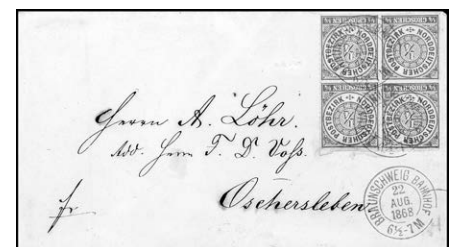 GROSCHEN
NORDDEUTSCHER POSTBEZIRK
Herrn A. Löhr.
Add. Herrn T. D. Voß.
Oschersleben
fr
BRAUNSCHWEIG BAHNHOF
22
AUG.
1868
6½-7M